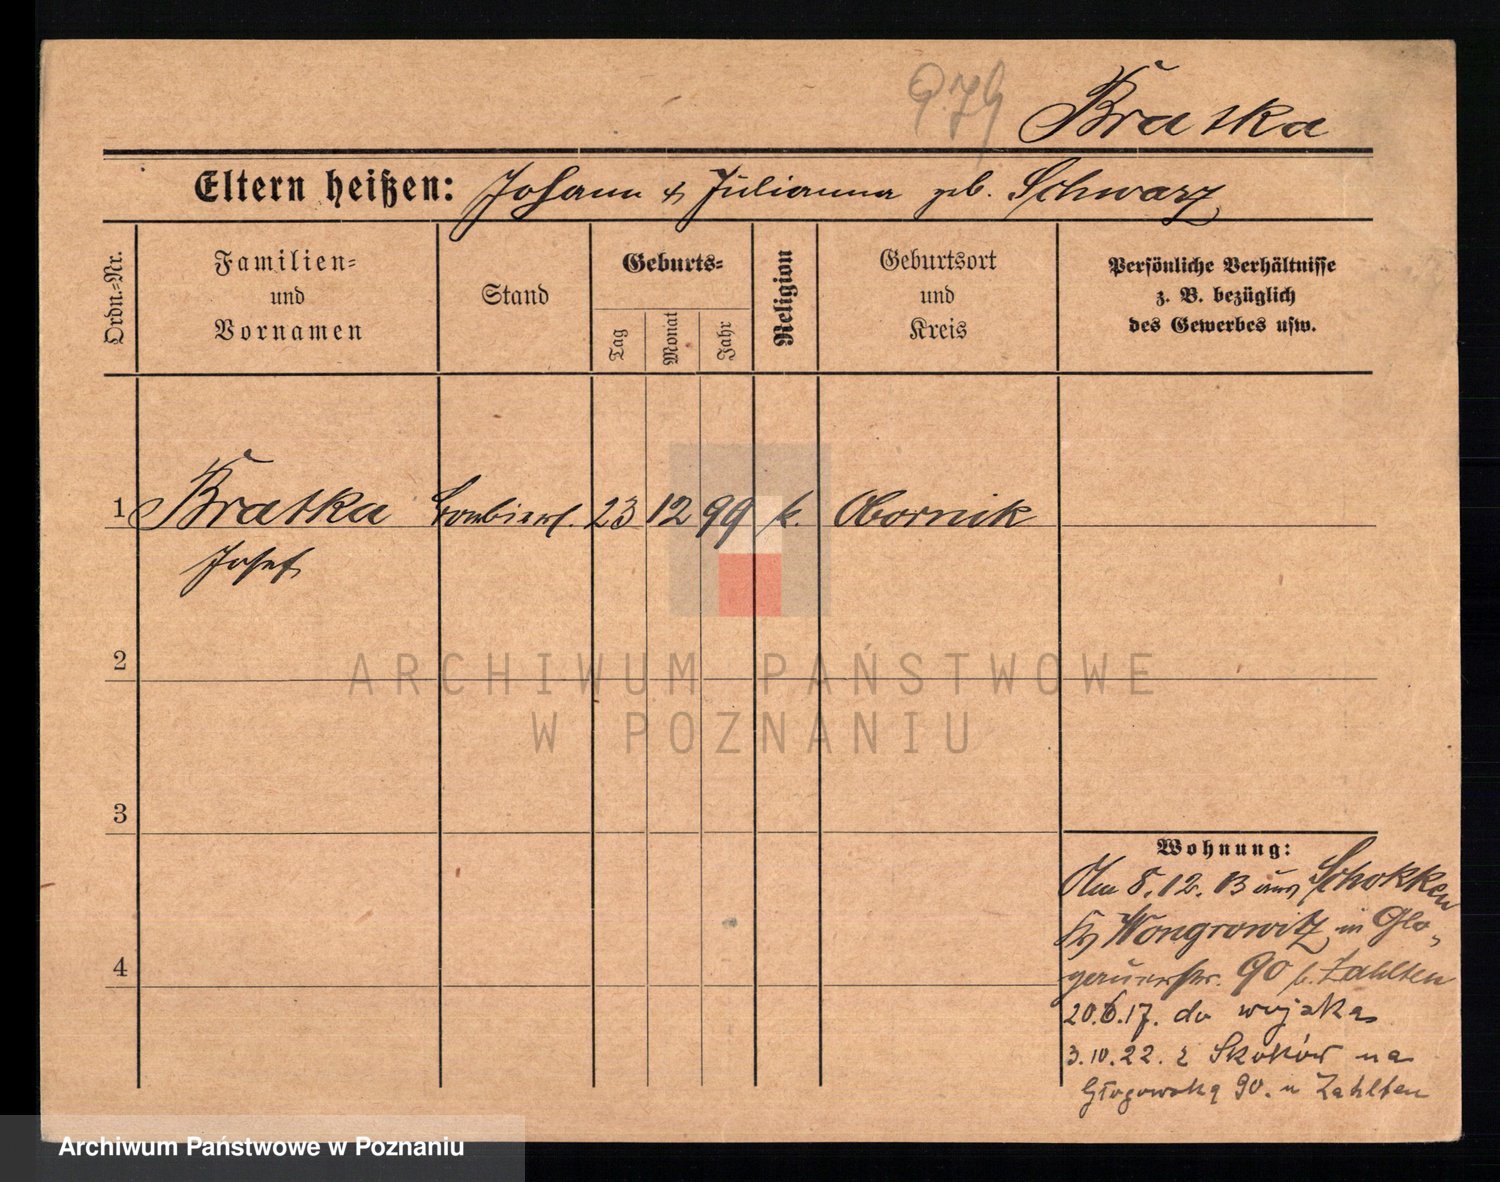 Bratka
Eltern heißen: Johann & Julianna geb. Schwarz
Ordn.=Nr.
Familien=
und
Vornamen
Stand
Geburts=
Tag
Monat
Jahr
Religion
Geburtsort
und
Kreis
Persönliche Verhältnisse
z. B. bezüglich
des Gewerbes usw.
1 Bratka 23 12 99 k. Obornik
Josef
2
3
4
Wohnung:
Am 8.12.13 aus Schokken
Kr Wongrowitz in Glo-
gauerstr. 90 b. Zahlten
20.6.17. do wojska
3.10.22. z Skoków na
Głogowską 90. u Zahlten
ARCHIWUM PAŃSTWOWE
W POZNANIU
Archiwum Państwowe w Poznaniu